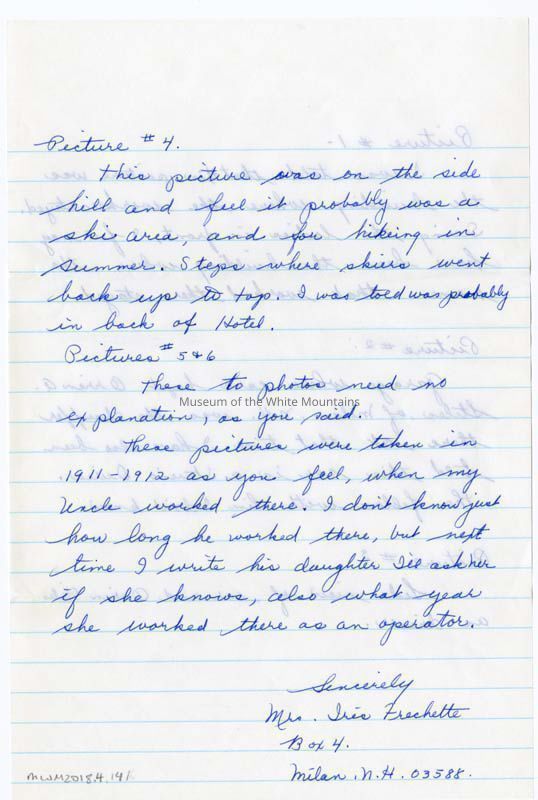 Picture # 4.
This picture was on the side
hill and feel it probably was a
ski area, and for hikeing in
summer. Steps where skiers went
back up to top. I was toed was probably
in back of Hotel.
Pictures # 5 & 6
These to photos need no
explanation, as you said.
Museum of the White Mountains
These pictures were taken in
1911-1912 as you feel, when my
Uncle worked there. I don't know just
how long he worked there, but next
time I write his daughter I'll ask her
if she knows, also what year
she worked there as an operator.
Sincerely
Mrs. Iris Frechette
Box 4.
Milan. N.H. 03588.
MWM2018.4.141